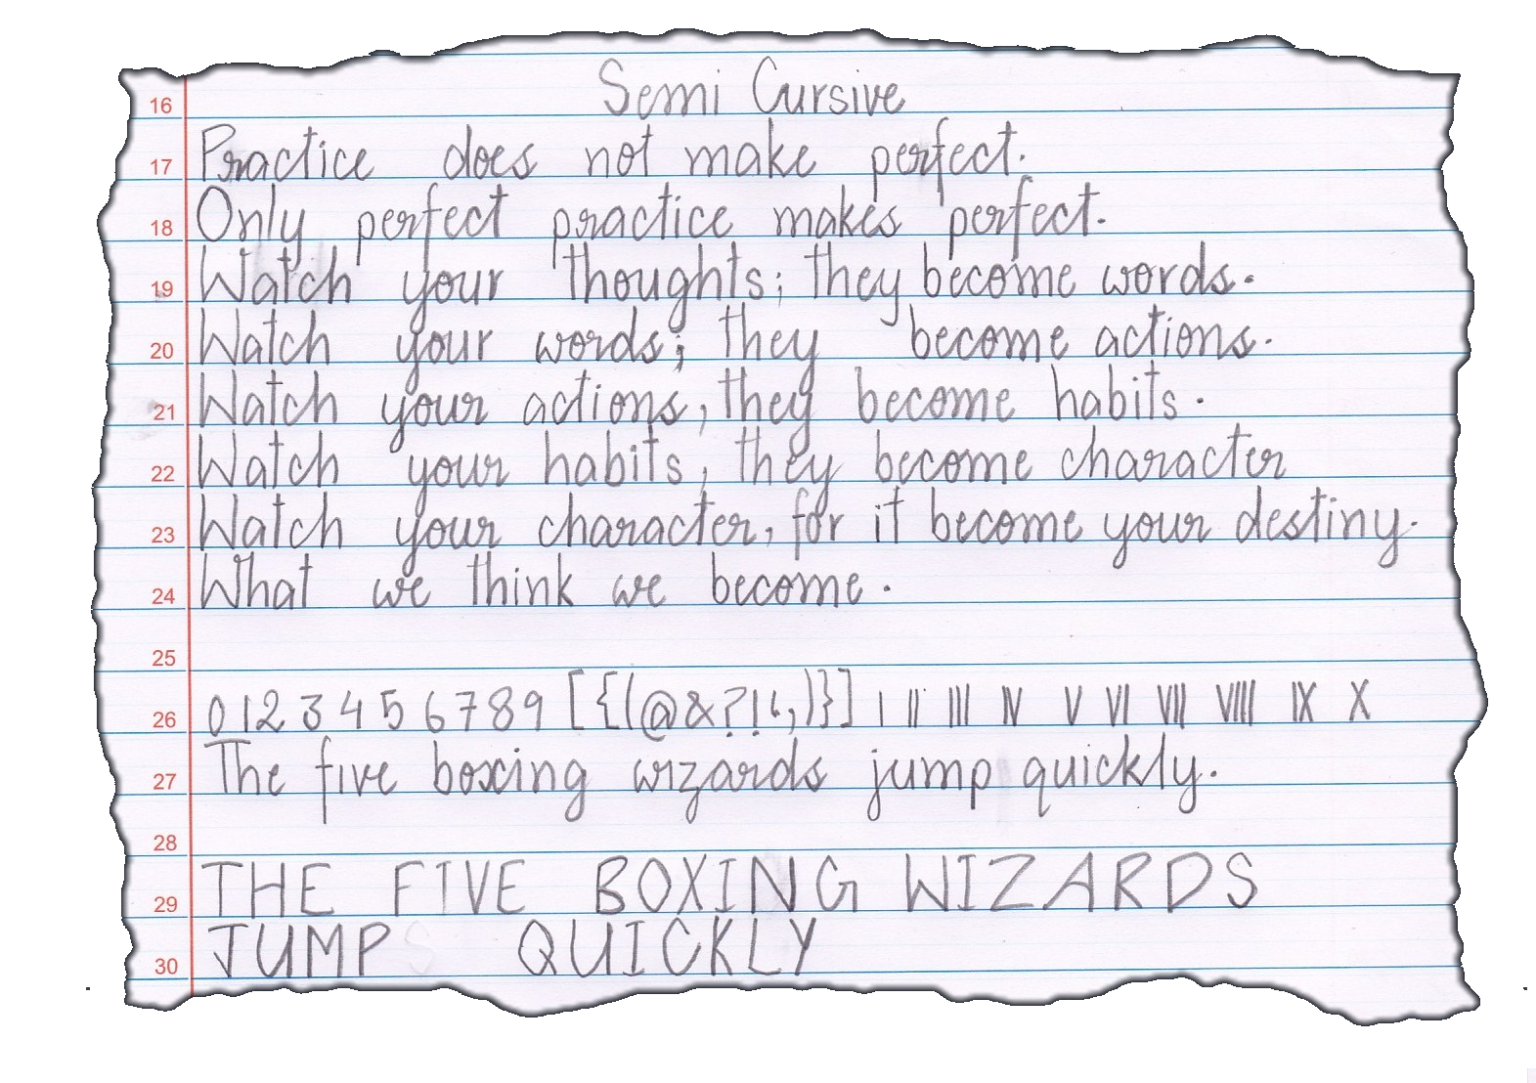 Semi Cursive
16
Practice does not make perfect.
17
Only perfect practice makes perfect.
18
Watch your thoughts; they become words.
19
Watch your words; they become actions.
20
Watch your actions, they become habits.
21
Watch your habits, they become character
22
Watch your character, for it become your destiny.
23
What we think we become.
24
25
0 1 2 3 4 5 6 7 8 9 [{(@&?!‘,)}] I II III IV V VI VII VIII IX X
26
The five boxing wizards jump quickly.
27
28
THE FIVE BOXING WIZARDS
29
JUMP QUICKLY
30